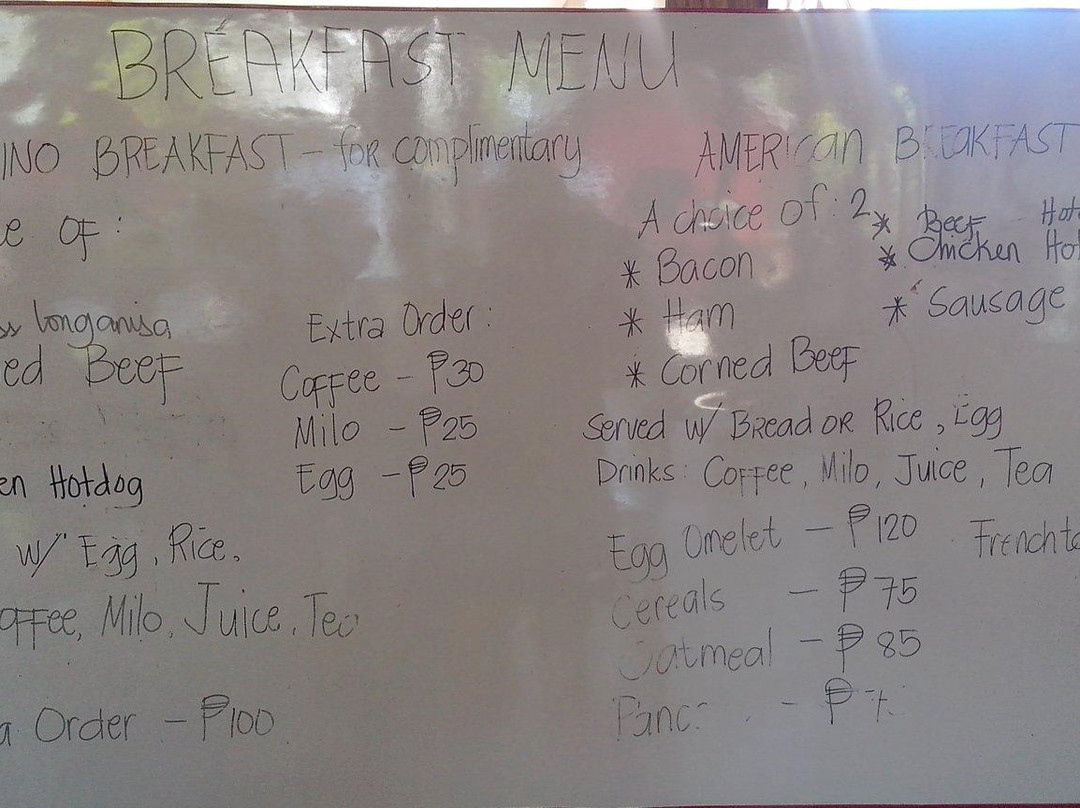 BREAKFAST MENU
INO BREAKFAST - for complimentary
e OF :
ss longanisa
ed Beef
en Hotdog
w/ Egg, Rice,
offee, Milo, Juice, Tea
a Order - ₱100
Extra Order :
Coffee - ₱30
Milo - ₱25
Egg - ₱25
AMERICAN BREAKFAST
A choice of : 2
* Bacon
* Ham
* Corned Beef
* Beef Hot
* Chicken Hot
* Sausage
Served w/ Bread or Rice, Egg
Drinks: Coffee, Milo, Juice, Tea
Egg Omelet - ₱120
Cereals - ₱75
Oatmeal - ₱85
Panc - ₱
Frencht